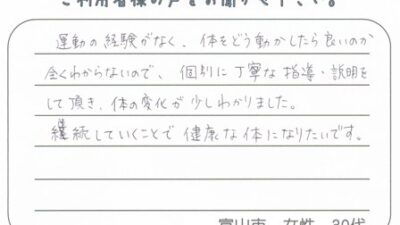 ご利用者様の声をお聞かせ下さい。
運動の経験がなく、体をどう動かしたら良いのか
全くわからないので、個別に丁寧な指導・説明を
して頂き、体の変化が少しわかりました。
継続していくことで健康な体になりたいです。
富山市 女性 30代